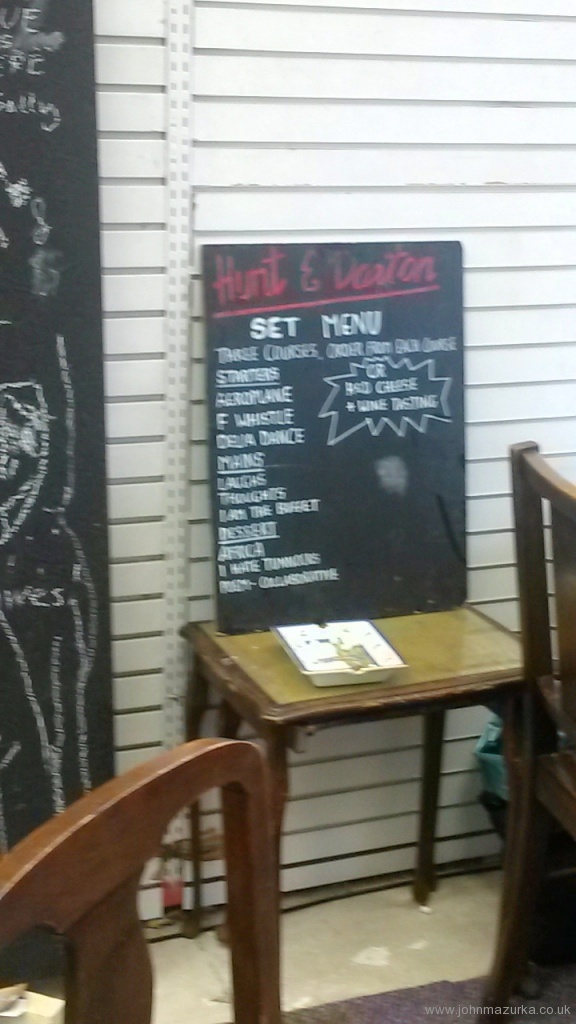 Hunt & Deaton
SET MENU
THREE COURSES, ORDER FROM EACH COURSE
STARTERS
AEROPLANE
F WHISTLE
DEJA DANCE
MAINS
LAUGHS
THOUGHTS
I AM THE BUFFET
DESSERT
AFRICA
I HATE TUMMOURS
POEM - COLLABORATIVE
OR
CHEESE
+ WINE TASTING
www.johnmazurka.co.uk